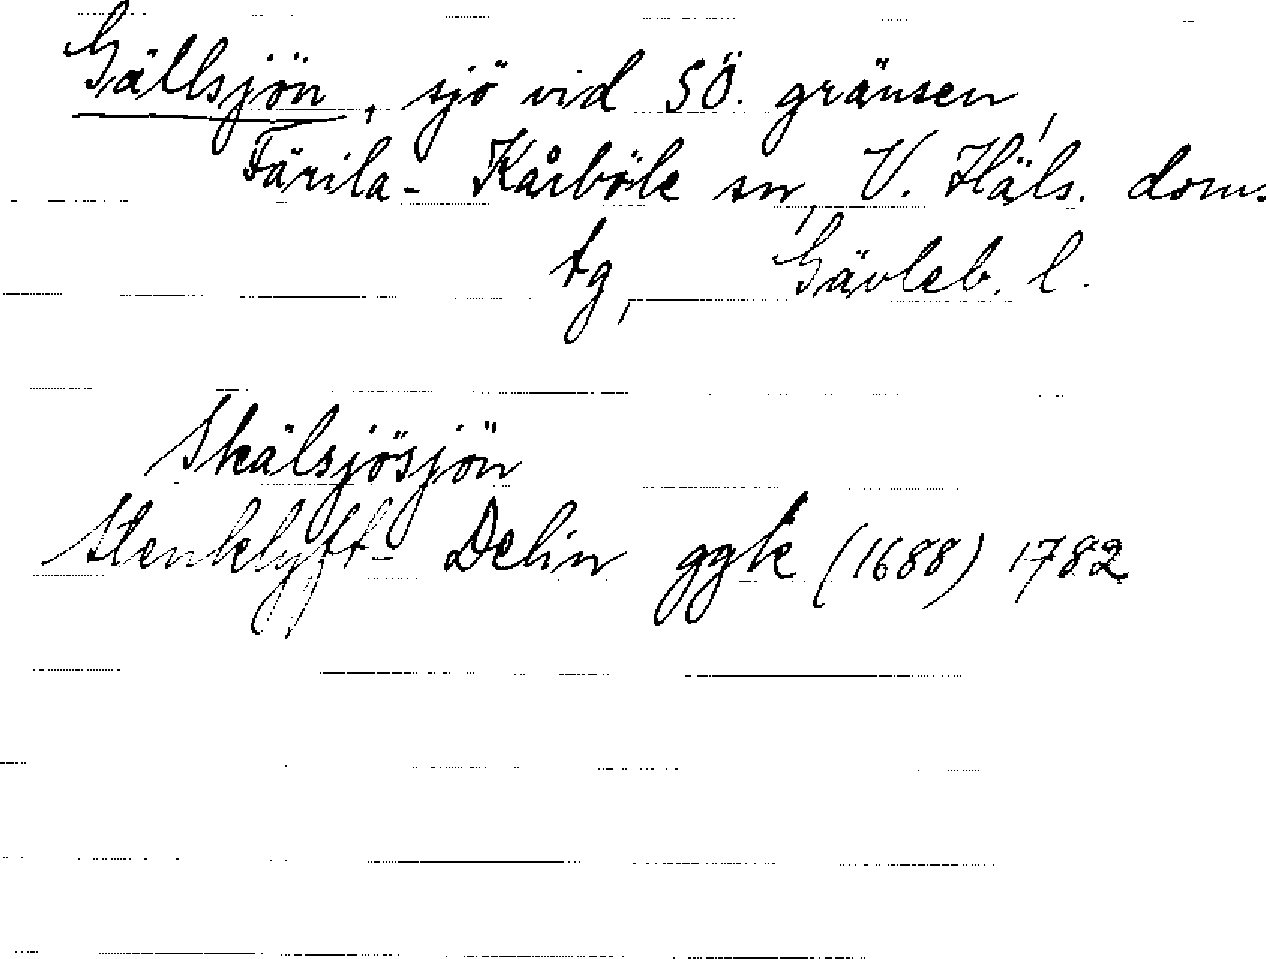 Gällsjön, sjö vid SÖ. gränsen,
Färila-Kårböle sn, V. Häls. doms
tg, Gävleb. l.
Skälsjösjön
Stenklyft- Delin ggk (1688) 1782